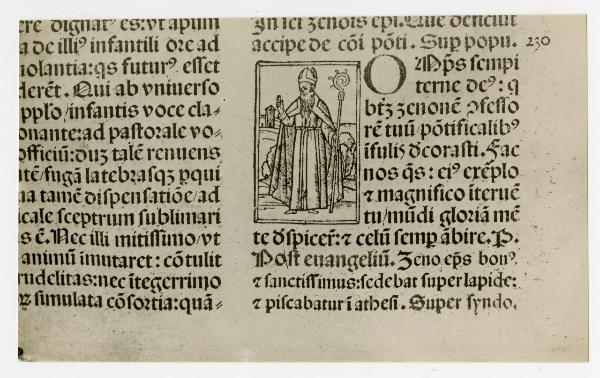 ere dignatꝰ es: vt apum
a de illiꝰ infantili ore ad
iolantia: qs futurꝰ esset
derēt. Qui ab vniuerso
ꝓplo / infantis voce cla⸗
onante: ad pastorale vo⸗
officiū: duʒ talē renuens
ntē / fugā latebrasqʒ ꝑqui
na tamē dispensatiōe / ad
icale sceptrum sublimari
s ē. Nec illi mitissimo / vt
animū imutaret: cōtulit
rudelitas: nec ītegerrimo
simulata cōsortia: quā⸗
In sci zenōis epi. Que deficiūt
accipe de cōi pōti. Suꝑ popu.
230
OMp̄s sempi
terne deꝰ: q
btʒ zenonē ꝯfesso
rē tuū pōtificalibꝰ
īsuliꝭ dcorasti. Fac
nos qs: eiꝰ exēplo
⁊ magnifico īteruē
tu / mūdi gloriā mē
te dspicerꝛ: ⁊ celū semꝑ ābire. P.
Post euangeliū. Zeno ep̄s bonꝰ.
⁊ sanctissimus: sedebat super lapide:
⁊ piscabatur ī athesi. Super syndo.